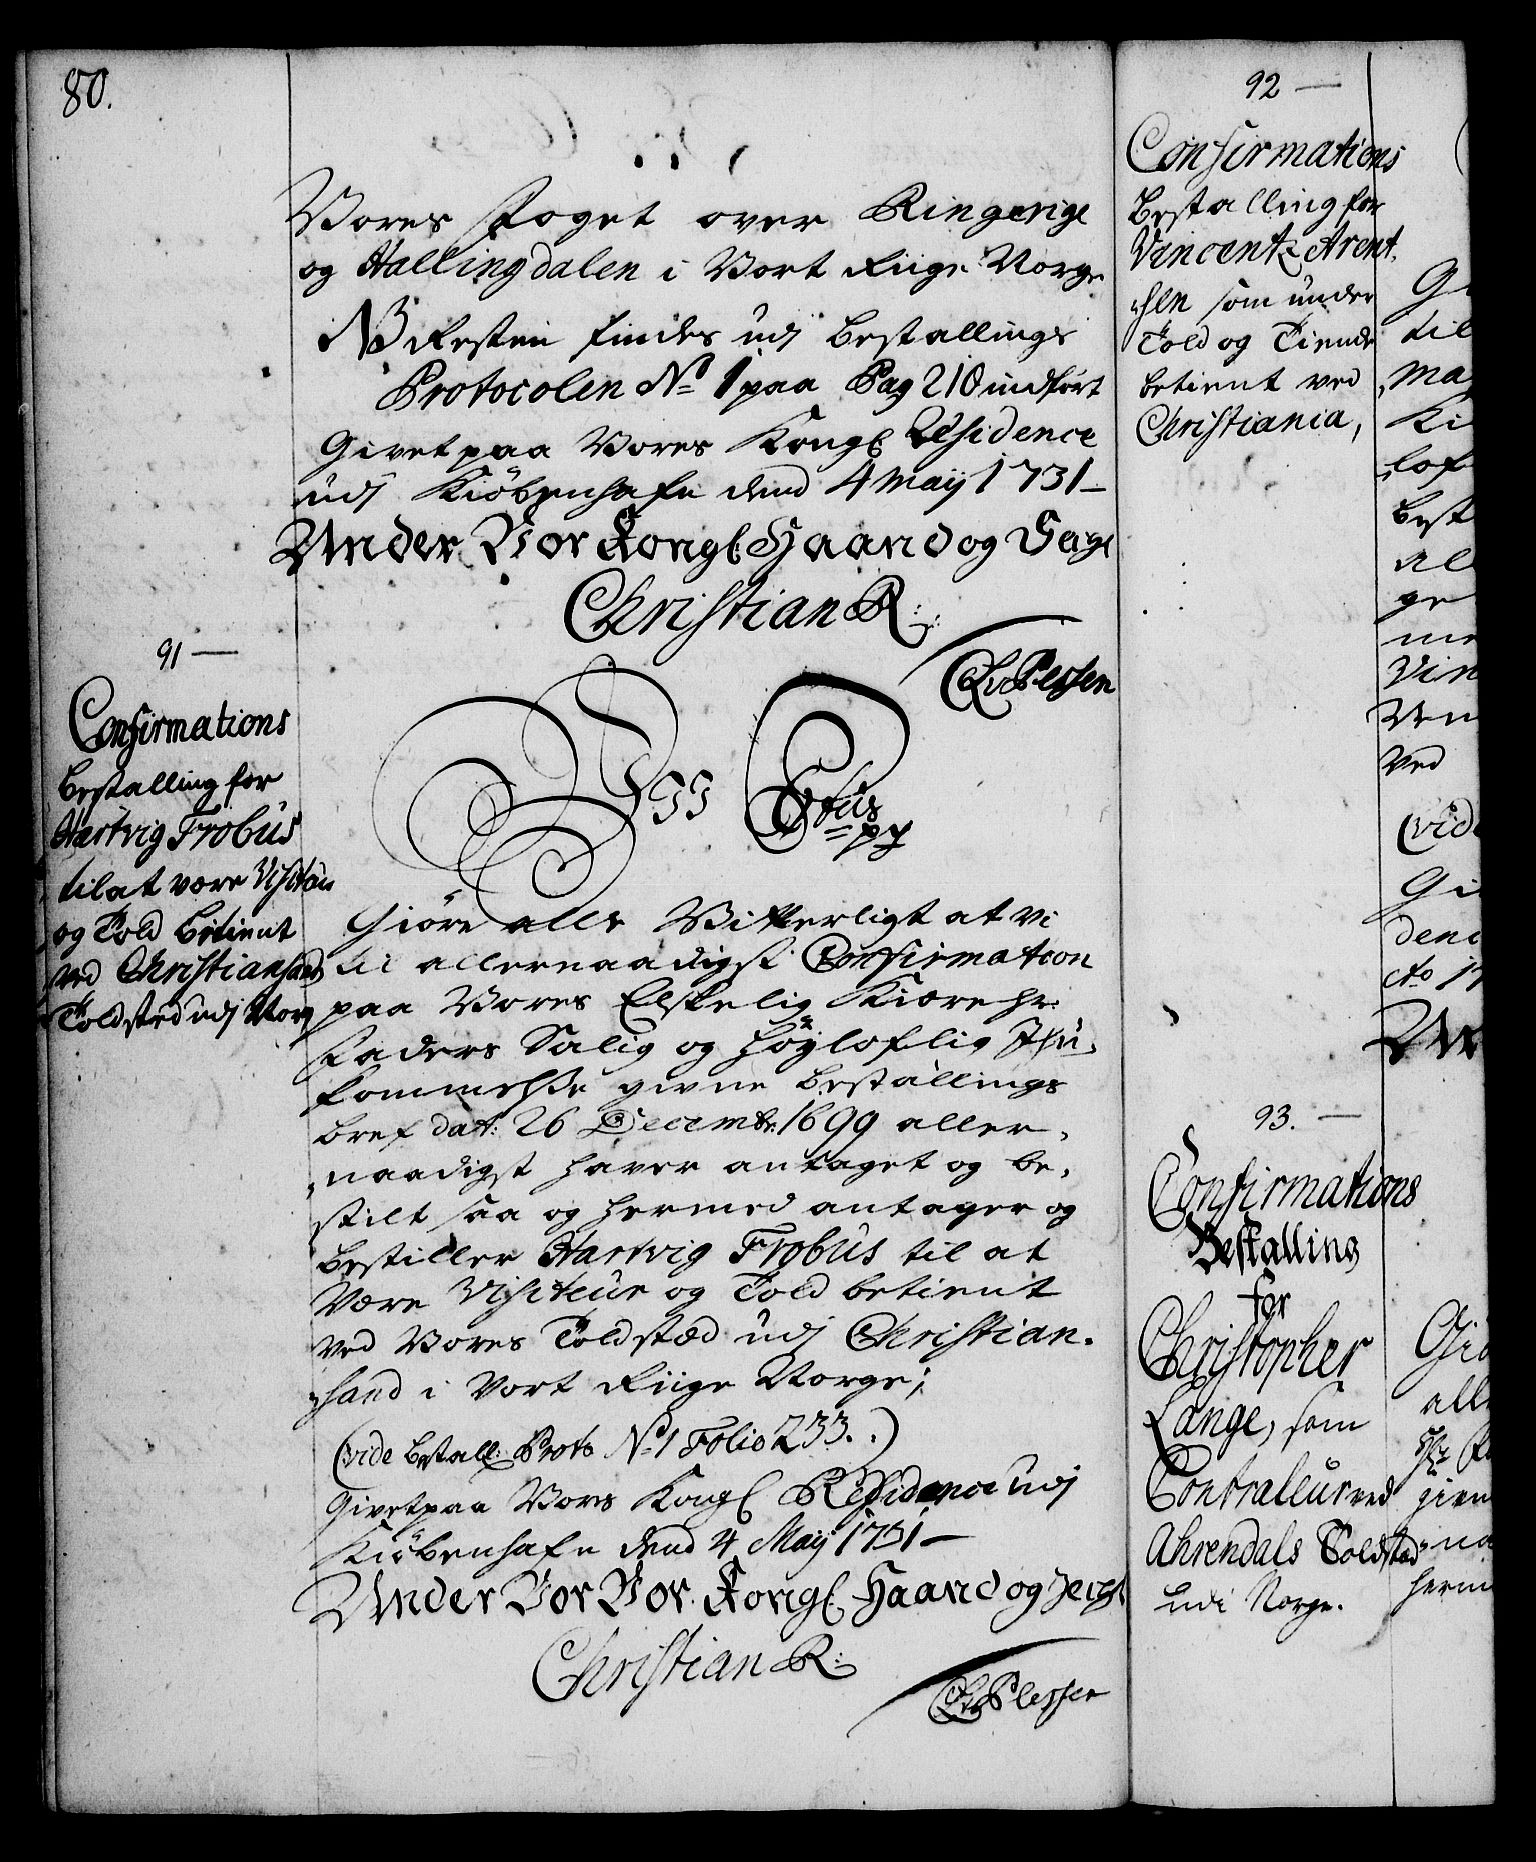 80.
Vores Foget over Ringerige
og Hallingdalen i Vort Riige Norge
NB Resten findes udj Bestallings
Protocolen No 1 paa Pag 210 indført
Givet paa Vores Kongl Residence
udj Kiöbenhafn dend 4 Maij 1731
Under Vor Kongl: Haand og Seigl
Christian R:
CAvPlessen
91
Confirmations
bestalling for
Hartvig Frobüs
til at være Visiteur
og Told betient
ved Christiansands
Toldsted udj Norg
Vii Totus
pp
Giöre alle Vitterligt at Vi
til allernaadigst Confirmation
paa Vores Elskelig Kiære Hr:
Faders Salig og Höyloflig Ihu,
kommelse givne bestallings
bref dat: 26 Decembr: 1699 aller,
naadigst haver antaget og be,
stilt saa og hermed antager og
bestiller Hartvig Frobüs til at
være Visiteur og Told betient
ved Vores Toldstæd udj Christian.
sand i Vort Riige Norge;
(vide Bestall: Proto No 1 Folio 233.)
Givet paa Vors Kongl Residence udj
Kiöbenhafn dend 4 Maij 1731
Under Vor Vor Kongl Haand og Seigl
Christian R:
CAvPlessen
92
Confirmations
bestalling for
Vincentz Arent,
sen som under
Told og Tiende
betient ved
Christiania,
93.
Confirmations
Bestalling
for
Christopher
Lange, som
Contralleur ved
Ahrendals Toldstæd
udi Norge.
til
Ki
lof
best
al
ge
Vin
ved
(vid
Gi
den
Ao 17
Giö
all
gien
na
herm